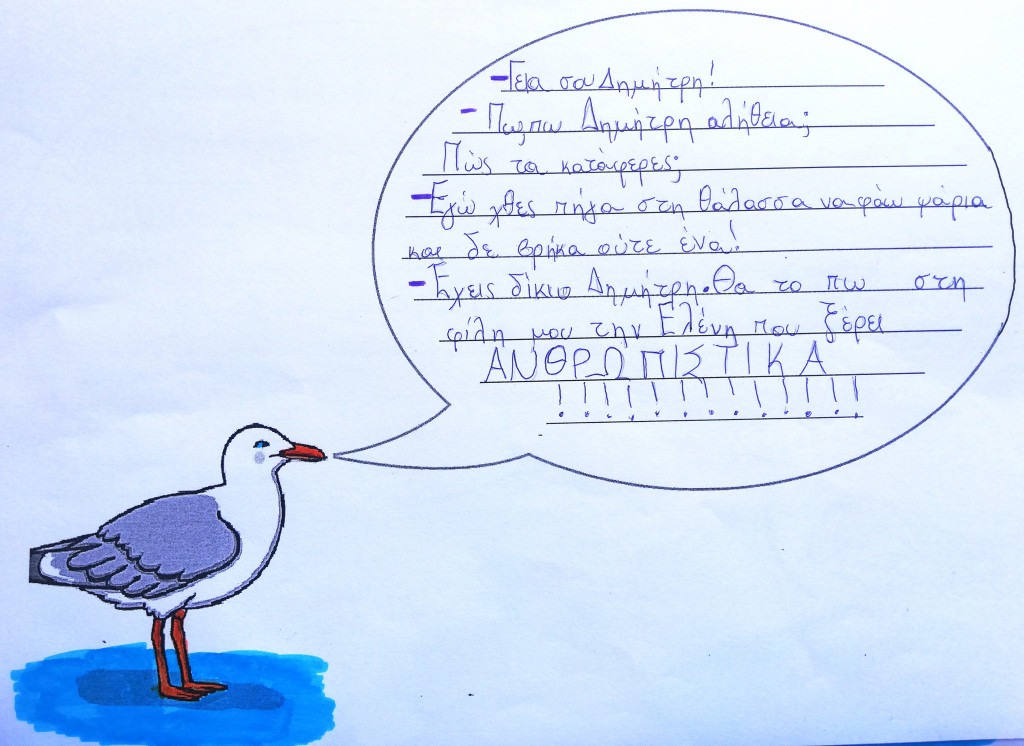 - Γεια σου Δημήτρη!
- Πωπω Δημήτρη αλήθεια;
Πώς τα κατάφερες;
- Εγώ χθες πήγα στη θάλασσα να φάω ψάρια
και δε βρήκα ούτε ένα!
- Έχεις δίκιο Δημήτρη. Θα το πω στη
φίλη μου την Ελένη που ξέρει
ΑΝΘΡΩΠΙΣΤΙΚΑ
!!!!!!!!!!!!!